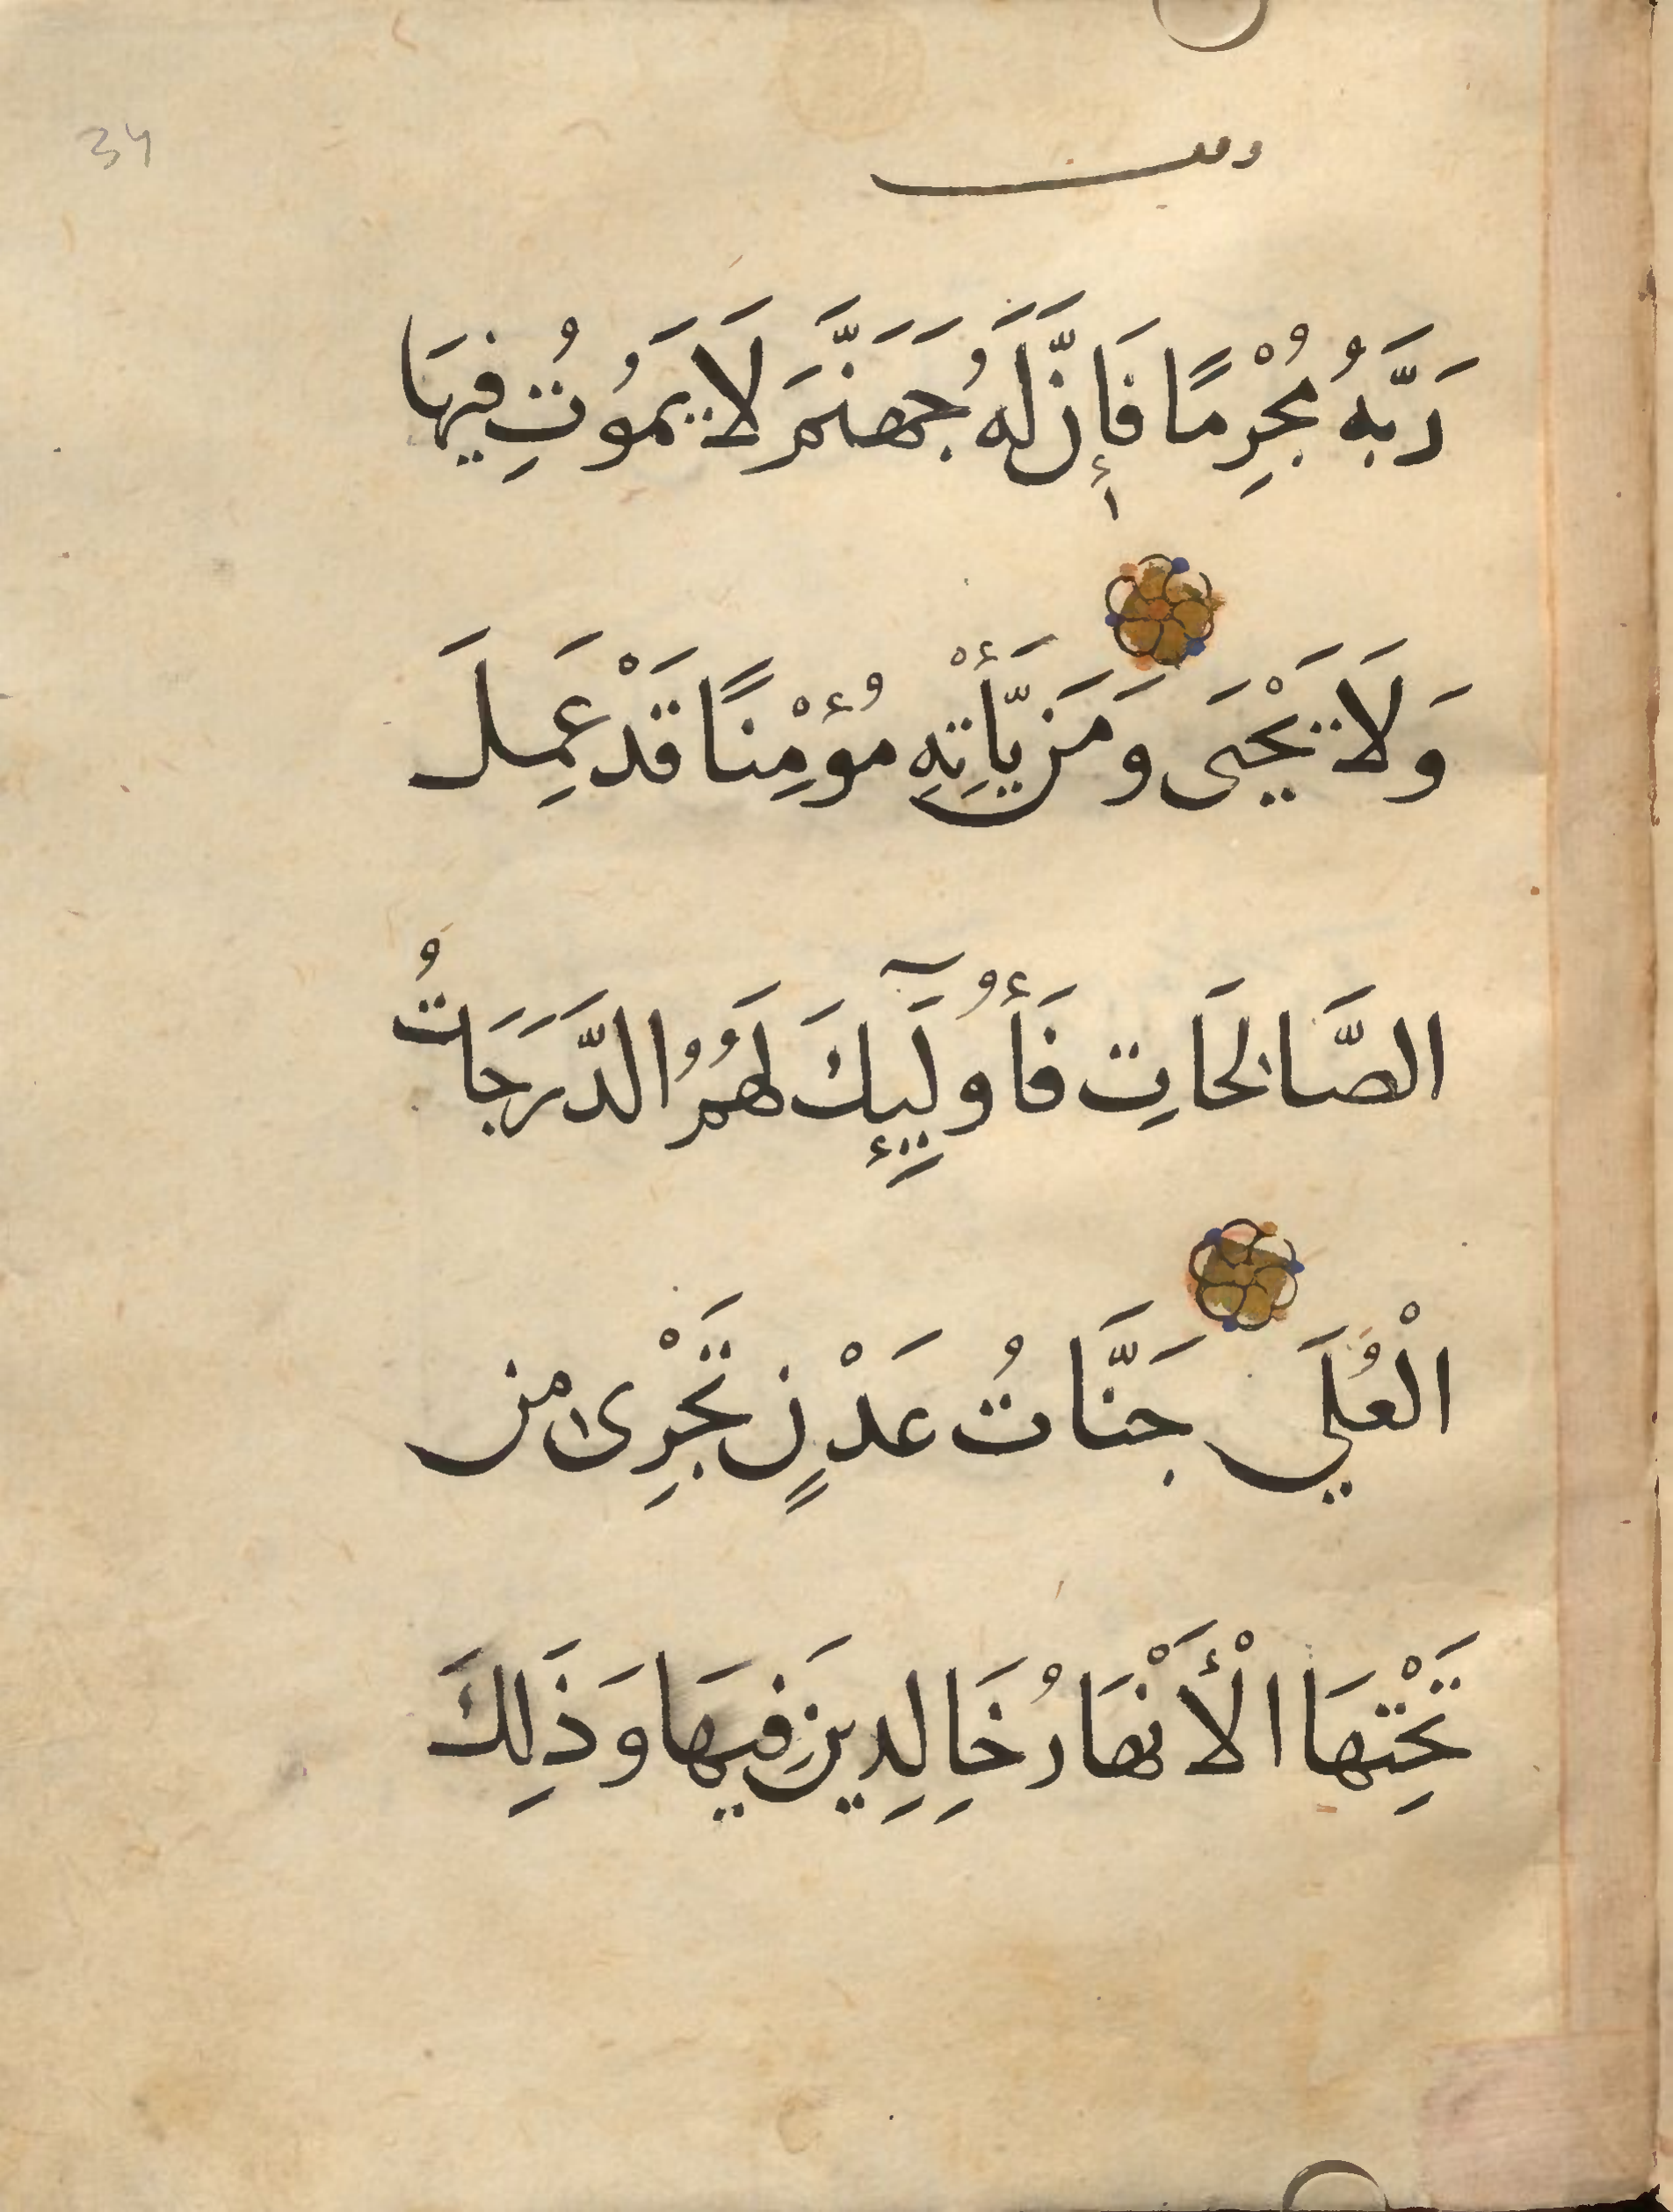 34
وقف
رَبَّهُ مُجْرِمًا فَإِنَّ لَهُ جَهَنَّمَ لَا يَمُوتُ فِيهَا
وَلَا يَحْيَى وَمَن يَّأْتِهِ مُؤْمِنًا قَدْ عَمِلَ
الصَّالِحَاتِ فَأُولَٰٓئِكَ لَهُمُ الدَّرَجَاتُ
الْعُلَي جَنَّاتُ عَدْنٍ تَجْرِى مِن
تَحْتِهَا الْأَنْهَارُ خَالِدِينَ فِيهَا وَذَلِكَ